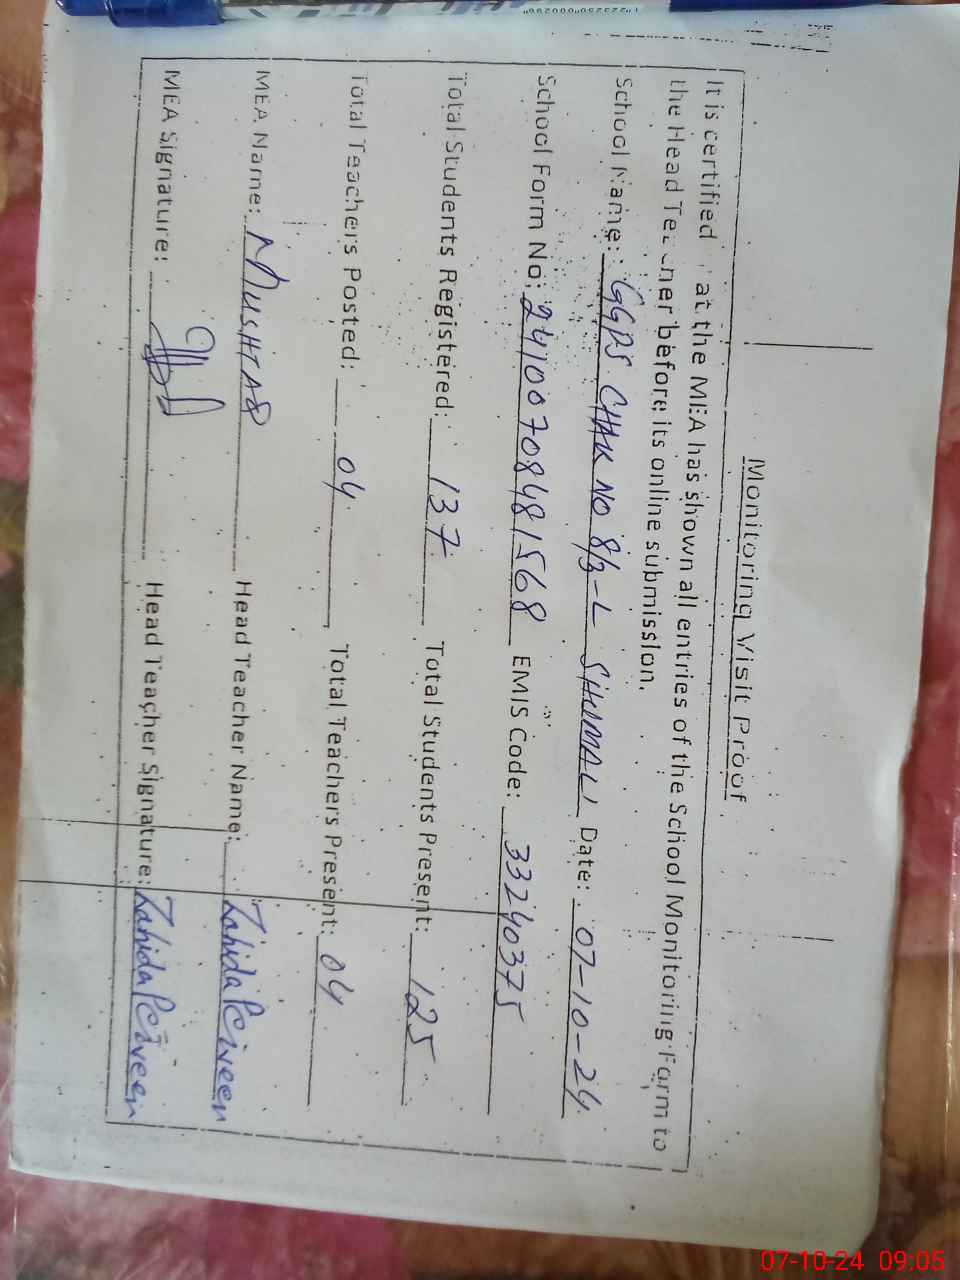 Monitoring Visit Proof
It is certified at the MEA has shown all entries of the School Monitoring Form to
the Head Teacher before its online submission.
School Name: GGPS CHAK NO 8/3-L SHUMALI Date: 07-10-24
School Form No: 24100708481568 EMIS Code: 33240375
Total Students Registered: 137 Total Students Present: 125
Total Teachers Posted: 04 Total Teachers Present: 04
MEA Name: MUSHTAQ Head Teacher Name: Zahida Perveen
MEA Signature: Head Teacher Signature: Zahida Perveen
07-10-24 09:05